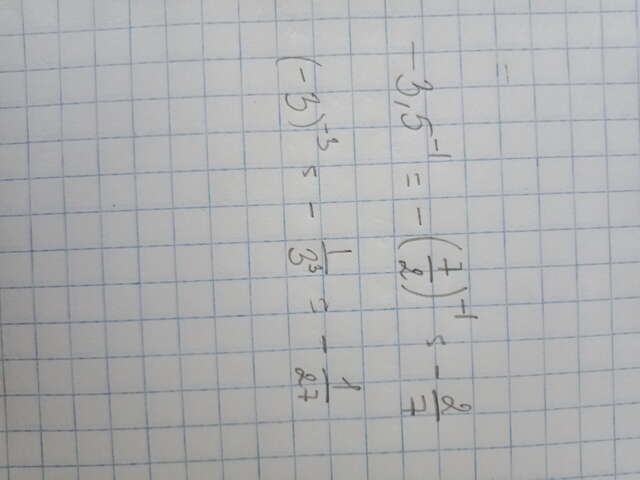 =
-3,5^{-1} = -(7/2)^{-1} = -2/7
(-3)^{-3} = -1/3^3 = -1/27